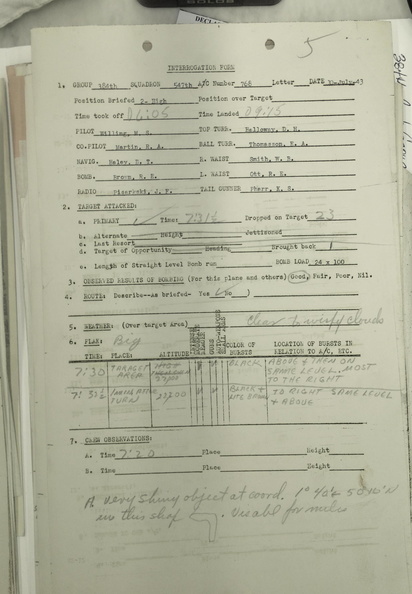 DECLA
5
384th
INTERROGATION FORM
1. GROUP 384th SQUADRON 547th A/C Number 768 Letter DATE 30-July-43
Position Briefed 2- High Position over Target
Time took off 06:05 Time Landed 09:15
PILOT TOP TURR. Halloway, D. H.
CO.PILOT Martin, S. A. BALL TURR. Thomason, E. A.
NAVIG. Haley, E. T. R. WAIST Smith, W. B.
BOMB. Brown, R. E. L. WAIST Ott, R. E.
RADIO TAIL GUNNER Pharr, K. S.
2. TARGET ATTACKED:
a. PRIMARY Time: 731½ Dropped on Target 23
b. Alternate Height Jettisoned
c. Last Resort
d. Target of Opportunity Heading Brought back 1
e. Length of Straight Level Bomb run BOMB LOAD 24 x 100
3. OBSERVED RESULTS OF BOMBING (For this plane and others) Good, Fair, Poor, Nil.
4. ROUTE: Describe--As briefed- Yes No )
5. WEATHER: (Over target Area) Clear to wispy clouds
6. FLAK: Big
TIME: PLACE: ALTITUDE COLOR OF BURSTS LOCATION OF BURSTS IN RELATION TO A/C, ETC.
7:30 TARGET AREA BLACK ABOVE & THEM ON SAME LEVEL. MOST TO THE RIGHT
7:30½ TURN BLACK + TO RIGHT SAME LEVEL & ABOVE
7. CREW OBSERVATIONS:
A. Time 7:20 Place Height
B. Time Place Height
A very shiny object at coord. 1° 40'E 50 10'N
in this shap . Visable for miles